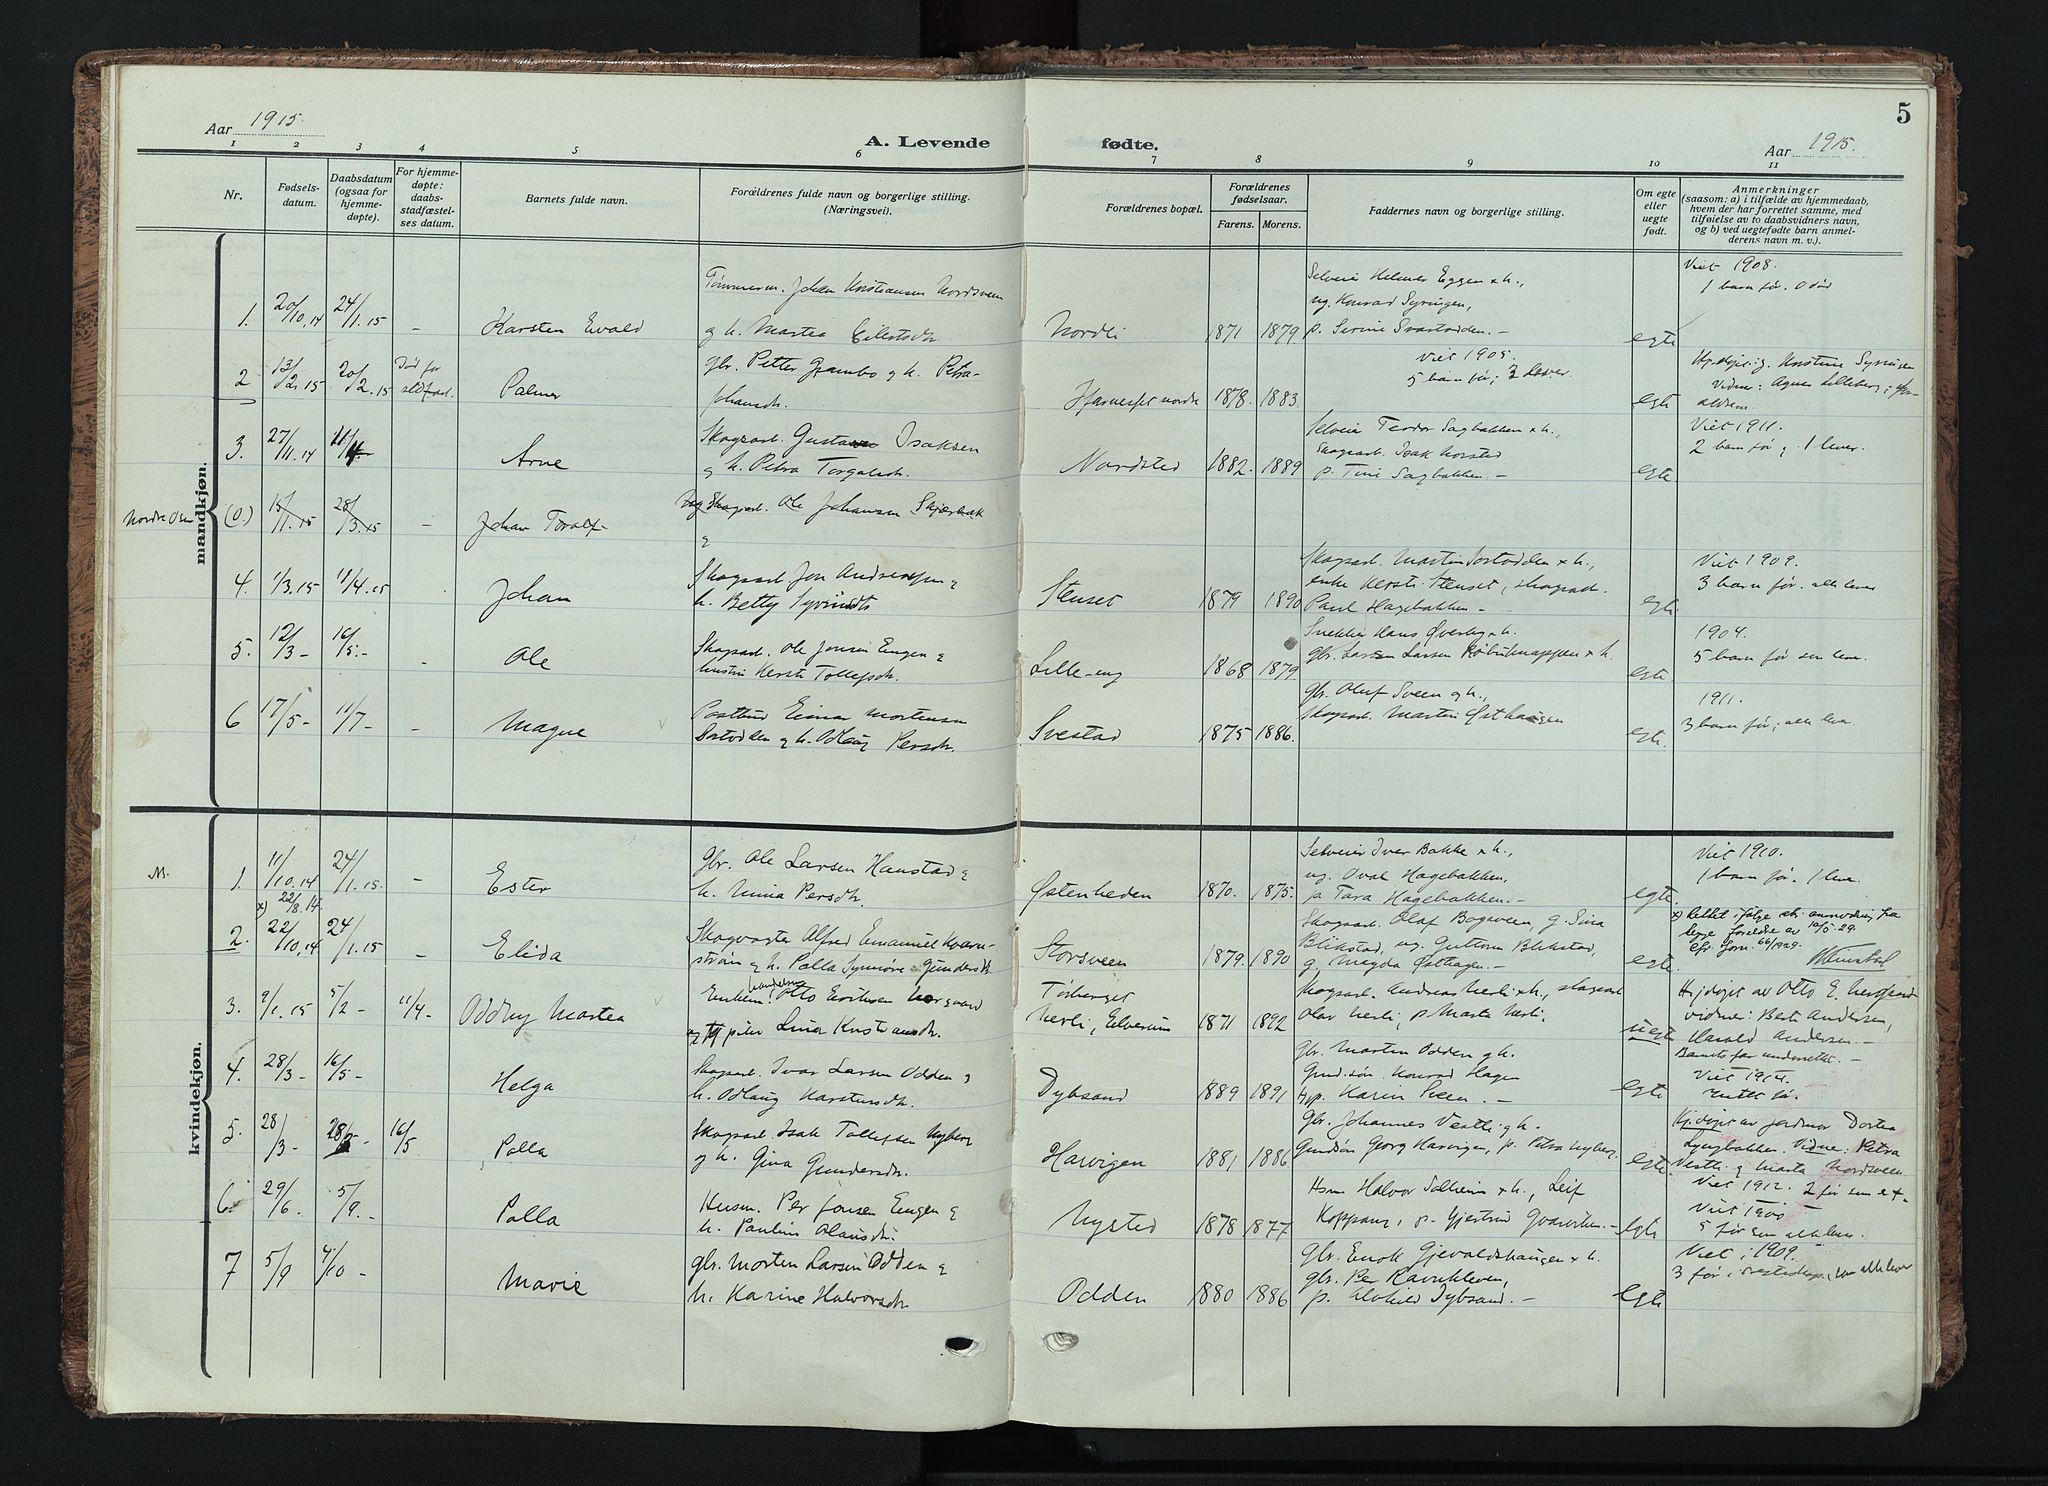 Aar 1915.
A. Levende
fødte.
Aar 1915.
5
1 2 3 4 5 6 7 8 9 10 11
Nr.
Fødsels-
datum.
Daabsdatum
(ogsaa for
hjemme-
døpte).
For hjemme-
døpte:
daabs-
stadfæstel-
ses datum.
Barnets fulde navn.
Forældrenes fulde navn og borgerlige stilling.
(Næringsvei).
Forældrenes bopæl.
Forældrenes
fødselsaar.
Farens. Morens.
Faddernes navn og borgerlige stilling.
Om egte
eller
uegte
født.
Anmerkninger
(saasom: a) i tilfælde av hjemmedaab,
hvem der har forrettet samme, med
tilføielse av to daabsvidners navn,
og b) ved uegtefødte barn anmel-
derens navn m. v.).
mandkjøn.
1. 20/10.14 24/1.15 - Karsten Ewald
Tømmerm. Johan Kristiansen Nordsveen
g h. Martea
Nordli 1871 1879
Selveier Helmer Eggen & h.,
ug. Konrad Syringen,
p. Serine Svartodden. -
egte
Viet 1908.
1 barn før. 0 død
2 13/2.15 20/2.15 Død før stadf. Palmer
gbr. Petter Grambo g h. Petra
Johansdr.
nordre 1878. 1883.
Viet 1905.
5 barn før; 3 lever
egte
Kristine Syringen
Vidner: Agnes Lilleberg;
3. 27/11.14 11/4 Arne
Skogsarb. Gustav Isaksen
g h. Petra Torgalsdr.
Nordsted 1882. 1889
Selveier Teodor Sagbakken & h.,
Skogsarb. Isak Norsted
p. Tine Sagbakken. -
egte
Viet 1911.
2 barn før g 1 lever.
Nordre Osen (0.) 15/11.15 28/3.15 - Johan Toralf
Skogsarb. Ole Johansen Skjærbæk
g
4. 1/3.15 11/4.15 Johan
Skogsarb. Jon Andersen g
h. Betty
Stenset 1879 1890
Skogsarb. Martin Sortodden & h.,
enke Kersti Stenset, skogsarb.
Paul Hagebakken -
egte
Viet 1909.
3 barn før. alle lever
5. 12/3 - 16/5. - - Ole
Skogsarb. Ole Jonsen Engen g
hustru Kersti Tollefsdr.
Lille-eng 1868 1879.
Snekker Hans Øverby & h.
gbr. Larsen & h.
egte.
1904.
5 barn før som lever.
6 17/5 - 11/7 - - Magne
Postbud Einar Mortensen
Sortodden g h. Odlaug Persdr.
Svestad 1875 1886.
gbr. Oluf Sveen g h.,
Skogsarb. Martin Østhaugen
egte.
1911.
3 barn før; alle lever.
kvindekjøn.
M. 1. 11/10.14 24/1.15. - Ester
Gbr. Ole Larsen Hanstad g
h. Mina Persdr.
Østenheden 1870. 1875.
Selveier Iver Bakke & h.,
ug. Oval Hagebakken,
p Tara Hagebakken. -
egte
Viet 1910.
1 barn før. 1 lever.
x) 22/8.14.
2. 22/10.14 24/1.15 - Elida
Skogvogter Alfred Emanuel Kvarn-
strøm g h. Palla Synnøve Gundersdr.
Storsveen 1879. 1890
Skogsarb. Olaf Bogsveen, g. Sina
Blikstad, ug. Guttorm Blikstad,
g. Magda Østhagen. -
egte.
x) Rettet ifølge skr. anmodning fra
begge foreldre av 10/5.29.
cfr. Jorn. 66/1929.
3. 9/1.15 5/2 - 11/4 - Oddny Martea
Enkem. handelsm. Otto Eriksen Norgaard
g pike Lina Kristiansdr.
Torberget
Nerli, Elverum 1871 1892
Skogsarb. Andreas Nerli & h., skogsarb.
Olav Nerli, p Marta Nerli.
uegte
Hj.døpt av Otto E. Norgaard
vidner: Berti Andersen,
Harald Andersen. -
Barnets far underrettet. -
4. 28/3 - 16/5 - Helga
Skogsarb. Ivar Larsen Odden g
h. Odlaug Karstensdr.
Dybsand 1889 1891
gbr. Morten Odden g h.
Gmd.søn Konrad Hagen
p. Karen Sveen. -
egte
Viet 1914.
intet før.
5. 28/3 - 28/3 - 16/5 Palla
Skogsarb. Isak Tollefsen Nyberg
g h. Gina Gundersdr.
Harvigen 1881 1886
Gbr. Johannes Vestli g h.
Gmdsøn Georg Harvigen, p. Petra Nyberg.
egte
Hj.døpt av jordmor Dortea
Lyngbakken. Vidne: Petra
Vestli g Marta Nordsveen.
Viet 1912. 2 før som
6. 29/6. 5/9. - Palla
Husm. Per Jonsen Engen g
h. Pauline Olausdr.
Nysted 1878 1877
Hsm Halvor Solheim & h., Leif
Koppang, p. Gjertrud -
egte
Viet
5 før som alle lever.
7 5/9 4/10 - Marie
gbr. Morten Larsen Odden g
h. Karine Halvorsdr.
Odden 1880 1886
gbr. Enok Gjevaldshaugen & h.
gbr. Per Kavnkleven,
p. Alvhild Dybsand. -
egte
Viet i 1909.
3 før i som alle lever